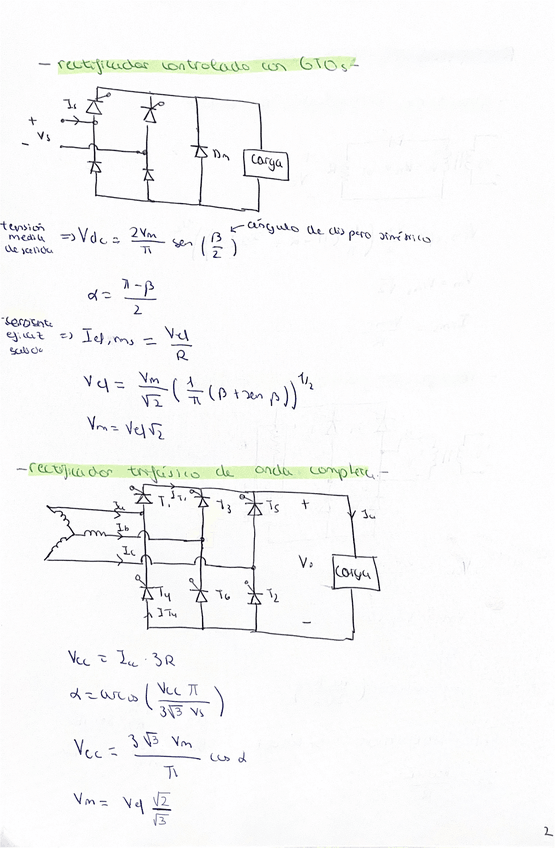 - rectificador controlado con GTOs -
Is
+
Vs
-
Dm
Carga
tensión media de salida => Vdc = 2Vm/π sen (β/2) ← ángulo de disparo simétrico
α = (π-β)/2
eficaz salida => Ief,rms = Vef/R
Vef = Vm/√2 (1/π (β + sen β))^1/2
Vm = Vef √2
- rectificador trifásico de onda completa -
T1 IT1 T3 T5 +
Ia
Ib
Ic
Vo
Carga
T4 T6 T2
IT4
-
Vcc = Icc · 3R
α = arcos (Vcc π / 3√3 Vs)
Vcc = 3√3 Vm / π cos α
Vm = Vef √2/√3
2